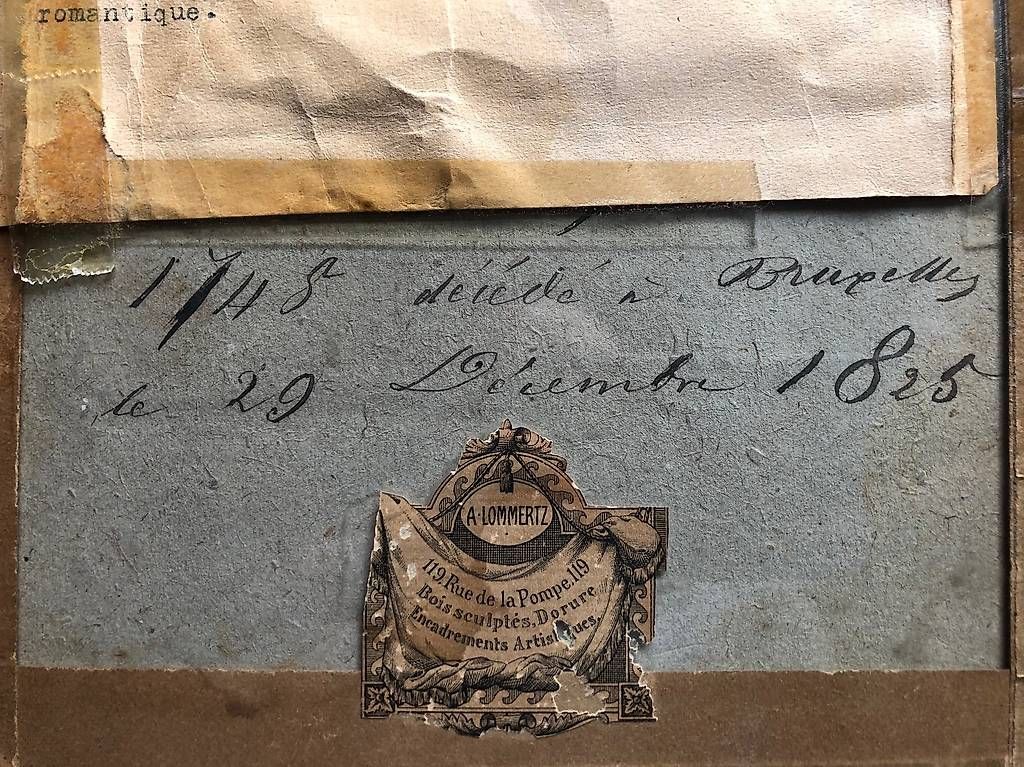 romantique.
1748 décédé à Bruxelles
le 29 Décembre 1825
A. LOMMERTZ
119. Rue de la Pompe. 119
Bois sculptés, Dorure
Encadrements Artistiques.